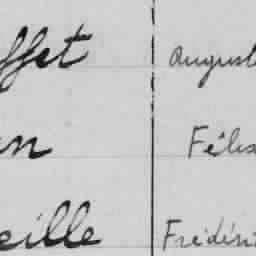 ffet August
en Félix
eille Frédéri